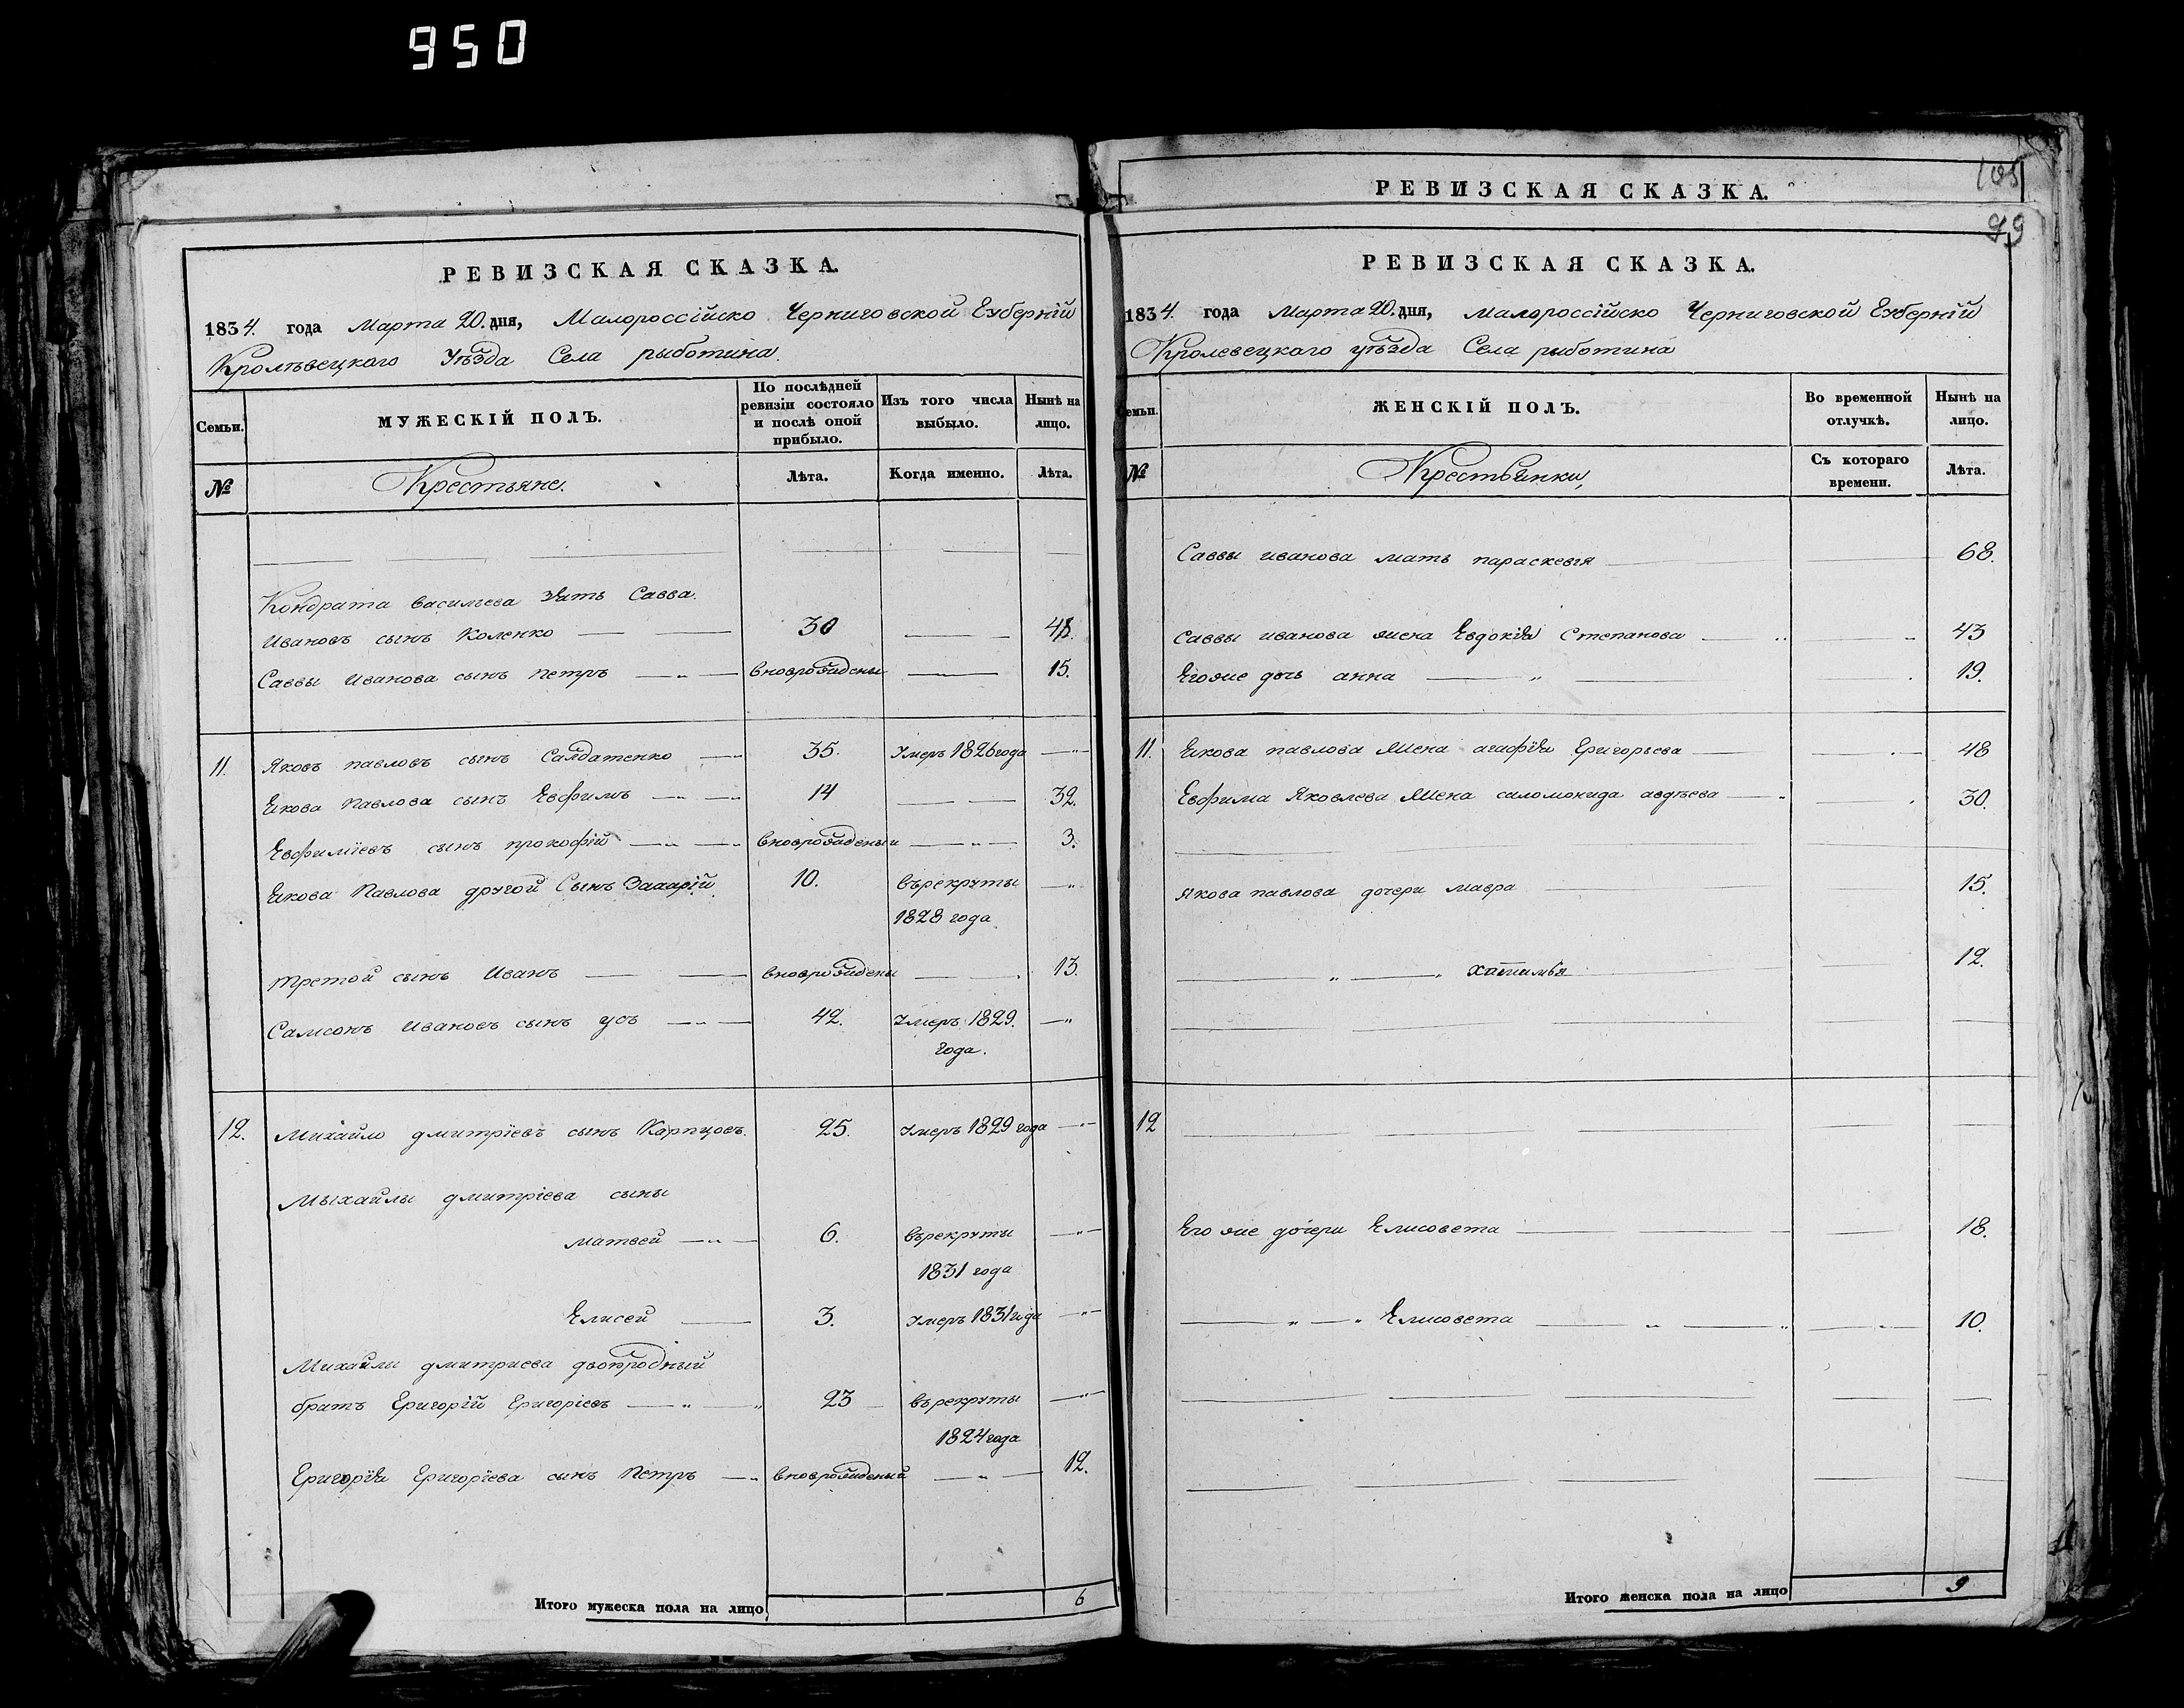 950
РЕВИЗСКАЯ СКАЗКА.
1834. года Марта 20. дня, Малороссійско Черниговской Губерніи
Кролѣвецкаго Уѣзда Села рыботина.
Семьи.
МУЖЕСКІЙ ПОЛЪ.
По послѣдней ревизіи состояло и послѣ оной прибыло.
Изъ того числа выбыло.
Нынѣ на лицо.
№
Крестьяне.
Лѣта.
Когда именно.
Лѣта.
Кондрата васильева зять Савва.
Ивановъ сынъ Коленко 30
Саввы Иванова сынъ петръ вноврожденъ 15.
11. Яковъ павловъ сынъ Салдатенко 35. Умеръ 1826 года
Якова Павлова сынъ Евфимъ 14 32.
Евфиміевъ сынъ прокофій вноврожденый 3.
Якова Павлова другой Сынъ Захарій 10. върекруты
1828 года
третой сынъ Иванъ вноврожденъ 13.
Самсонъ Ивановъ сынъ усъ 42. Умеръ 1829.
года.
12. Михайло дмитріевъ сынъ Карпцовъ. 25. Умеръ 1829 года
Мыхайлы дмитріева сыны
матвей 6. върекруты
1831 года
Елисей 3. Умеръ 1831 года
Михайлы дмитриева двоюродный
братъ Григорій Григоріевъ 23 върекруты
1824 года
Григорія Григоріева сынъ Петръ вноврожденый 12.
Итого мужеска пола на лицо 6
РЕВИЗСКАЯ СКАЗКА.
105
99
РЕВИЗСКАЯ СКАЗКА.
1834. года Марта 20. дня, Малороссійско Черниговской Губерніи
Кролевецкаго уѣзда Села рыботина
Семьи.
ЖЕНСКІЙ ПОЛЪ.
Во временной отлучкѣ.
Нынѣ на лицо.
№
Крестьянки,
Съ котораго времени.
Лѣта.
Саввы иванова мать параскевія 68.
Саввы иванова жена Евдокія Степанова 43
Егоже дочь анна 19.
11. Якова павлова жена агафія Григорьева 48
Евфима Яковлева жена саломонида авдѣева 30.
Якова павлова дочери мавра 15.
12.
12
Его же дочери Елисовета 18.
Елисовета 10.
Итого женска пола на лицо 9